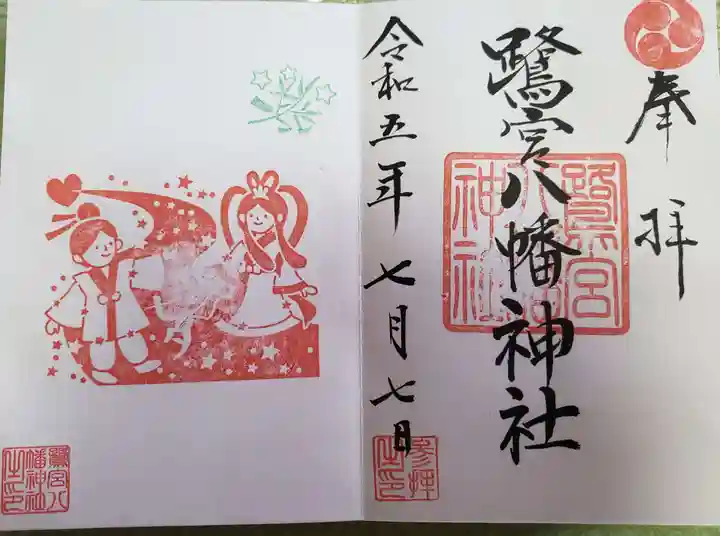 奉拝
鷺宮八幡神社
鷺宮八幡神社
令和五年七月七日
参拝之印
七夕
鷺宮八幡神社之印